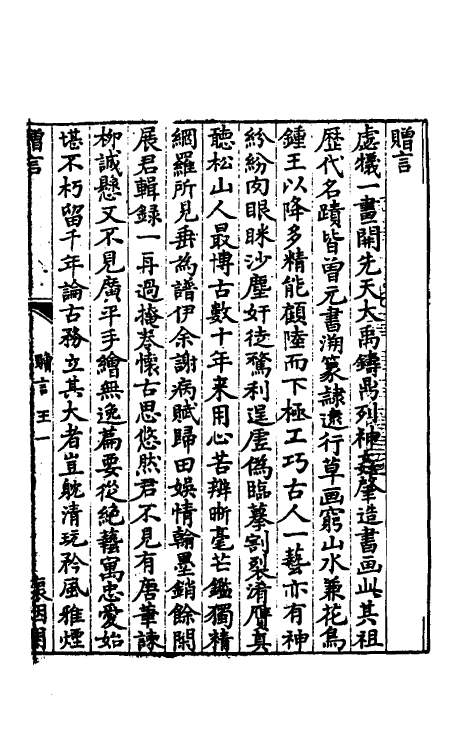 贈言
虙犧一畫開先天大禹鑄鼎列神姦肇造書画此其祖
歷代名蹟皆曾元書溯篆隷逮行草画窮山水兼花鳥
鍾王以降多精能顧陸而下極工巧古人一藝亦有神
紛紛肉眼眯沙塵奸徒騖利逞虛偽臨摹割裂淆贋真
聽松山人最博古數十年来用心苦辨晰毫芒鑑獨精
網羅所見垂為譜伊余謝病賦歸田娛情翰墨銷餘閒
展君輯録一再過掩卷懷古思悠然君不見有唐筆諫
柳誠懸又不見廣平手繪無逸篇要從絶藝寓忠愛始
堪不朽留千年論古務立其大者豈躭清玩矜風雅煙
贈言
贈言 王 一